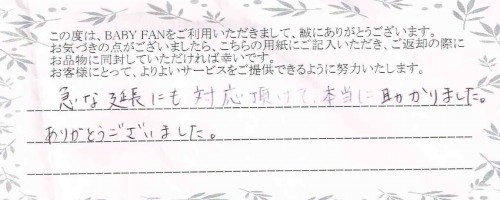 この度は、BABY FANをご利用いただきまして、誠にありがとうございます。
お気づきの点がございましたら、こちらの用紙にご記入いただき、ご返却の際に
お品物に同封していただければ幸いです。
お客様にとって、よりよいサービスをご提供できるように努力いたします。
急な延長にも対応頂けて、本当に助かりました。
ありがとうございました。